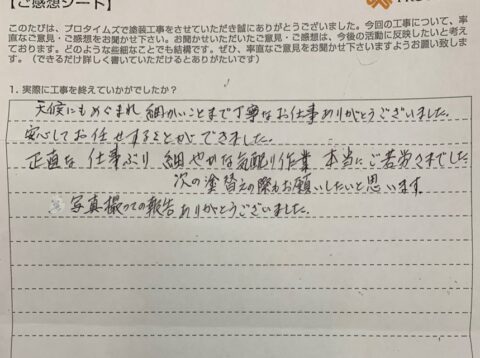 【ご感想シート】
このたびは、プロタイムズで塗装工事をさせていただき誠にありがとうございました。今回の工事について、率
直なご意見・ご感想をお聞かせ下さい。お聞かせいただいたご意見・ご感想は、今後の活動に反映したいと考え
ております。どのような些細なことでも結構です。ぜひ、率直なご意見をお聞かせ下さいますようお願い致しま
す。（できるだけ詳しく書いていただけるとありがたいです）
1. 実際に工事を終えていかがでしたか？
天候にもめぐまれ 細かいことまで丁寧なお仕事ありがとうございました。
安心してお任せすることができました。
正直な 仕事ぶり 細やかな気配り作業 本当にご苦労さまでした
次の塗替えの際もお願いしたいと思います。
写真撮っての報告ありがとうございました。